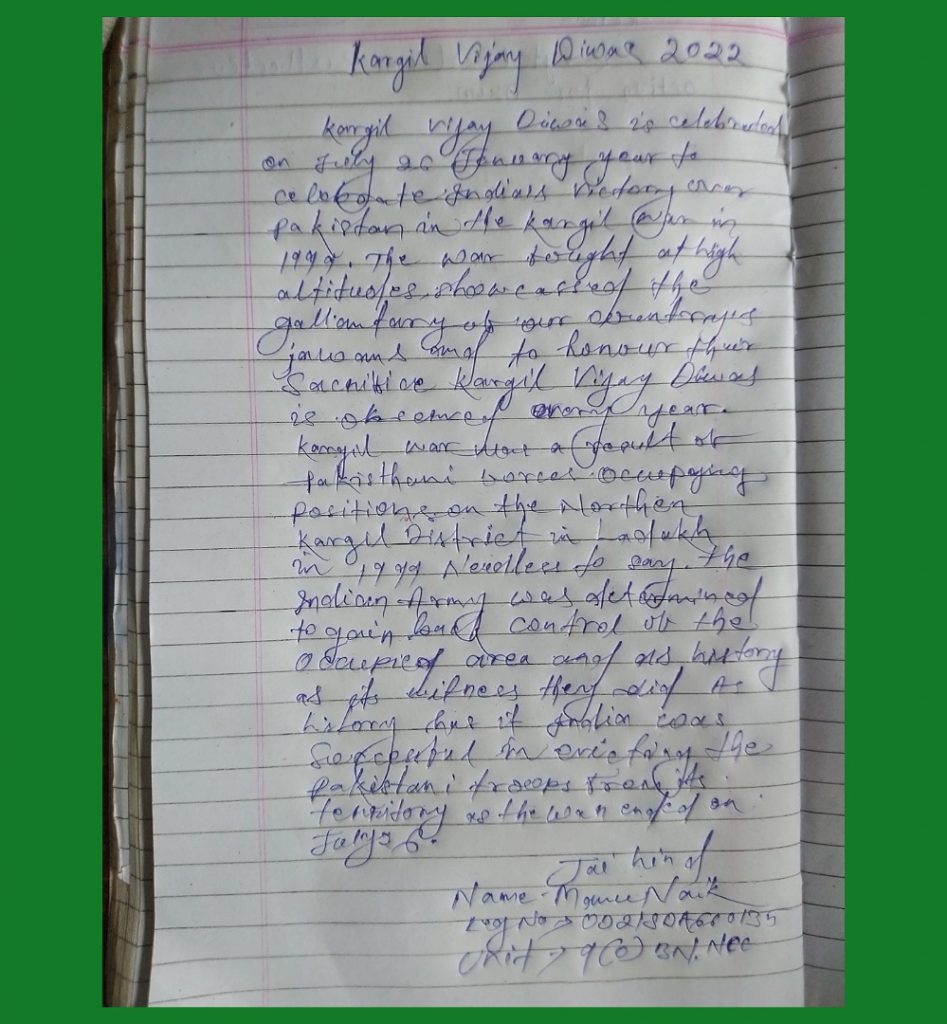 Kargil Vijay Diwas 2022
Kargil Vijay Diwas is celebrated
on July 26 January year to
celebrate Indias victory over
pakistan in the Kargil war in
1999. The war fought at high
altitudes, showcased the
gallantary of our countrymen's
jawans and to honour their
Sacrifice Kargil Vijay Diwas
is observed every year.
Kargil war was a result of
pakisthani forces occupying
positions on the Northen
Kargil District in Ladakh
in 1999 Needless to say. the
Indian Army was determined
to gain back control of the
occupied area and as history
as its witness they did As
history has it India was
Successful in evicting the
pakistani troops from its
territory as the war ended on
July 26.
Jai hind
Name - Naik
Reg No →
Unit → 9(O) BN. NCC